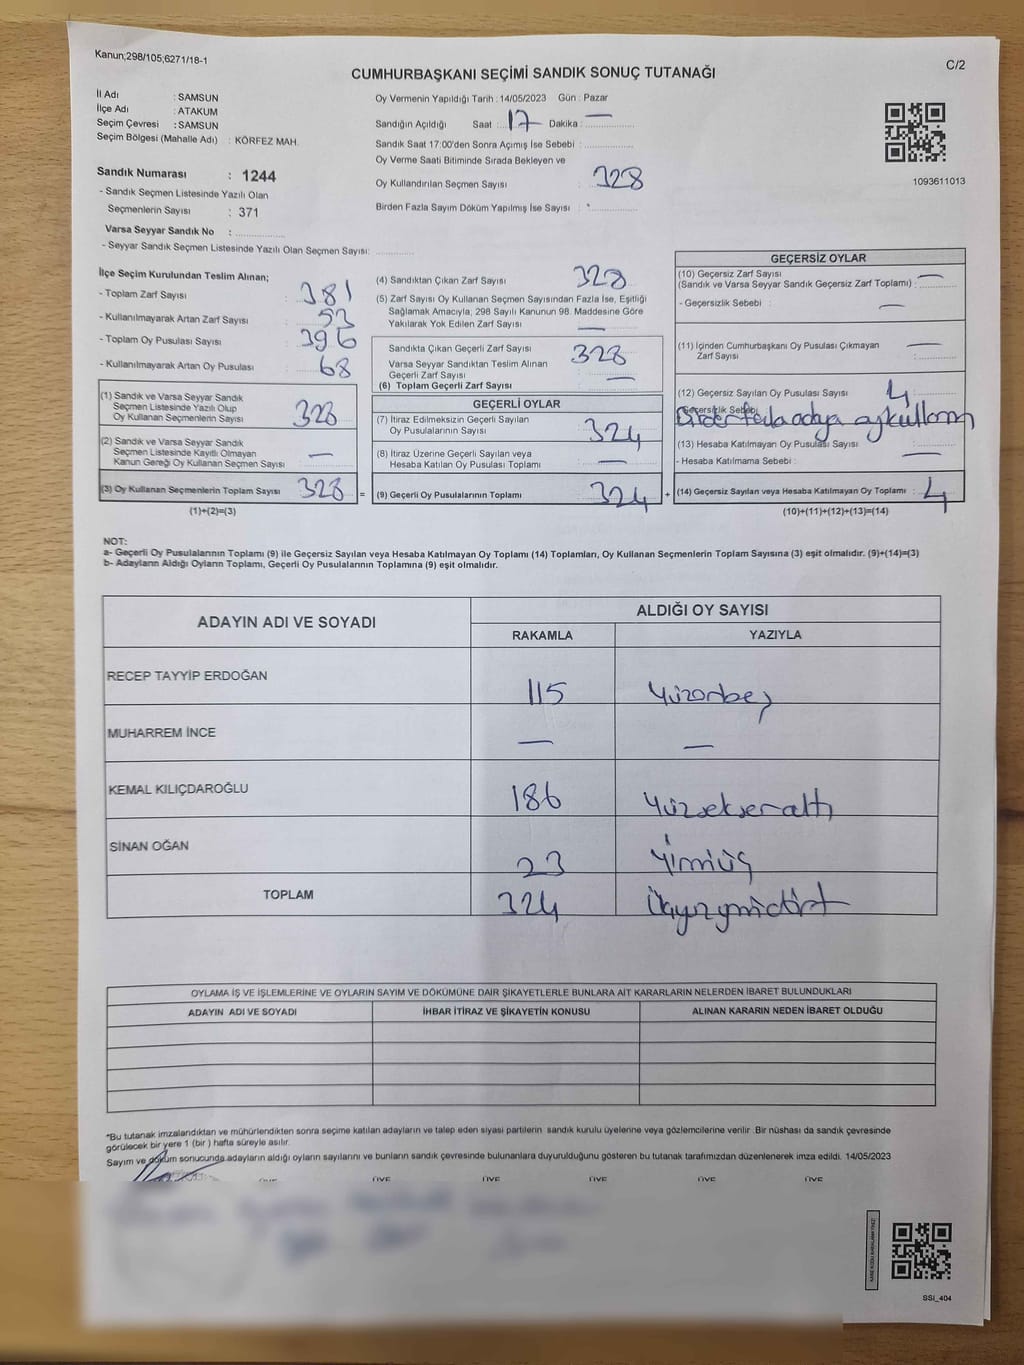 Kanun;298/105;6271/18-1
C/2
CUMHURBAŞKANI SEÇİMİ SANDIK SONUÇ TUTANAĞI
İl Adı : SAMSUN
İlçe Adı : ATAKUM
Seçim Çevresi : SAMSUN
Seçim Bölgesi (Mahalle Adı) : KÖRFEZ MAH.
Sandık Numarası : 1244
- Sandık Seçmen Listesinde Yazılı Olan
Seçmenlerin Sayısı : 371
Varsa Seyyar Sandık No : ..............
- Seyyar Sandık Seçmen Listesinde Yazılı Olan Seçmen Sayısı: ............
Oy Vermenin Yapıldığı Tarih : 14/05/2023 Gün : Pazar
Sandığın Açıldığı Saat : 17 Dakika : —
Sandık Saat 17:00'den Sonra Açımış İse Sebebi : ..............
Oy Verme Saati Bitiminde Sırada Bekleyen ve
Oy Kullandırılan Seçmen Sayısı : 328
Birden Fazla Sayım Döküm Yapılmış İse Sayısı : ..............
1093611013
İlçe Seçim Kurulundan Teslim Alınan;
- Toplam Zarf Sayısı : 381
- Kullanılmayarak Artan Zarf Sayısı : 53
- Toplam Oy Pusulası Sayısı : 396
- Kullanılmayarak Artan Oy Pusulası : 68
(1) Sandık ve Varsa Seyyar Sandık
Seçmen Listesinde Yazılı Olup
Oy Kullanan Seçmenlerin Sayısı : 328
(2) Sandık ve Varsa Seyyar Sandık
Seçmen Listesinde Kayıtlı Olmayan
Kanun Gereği Oy Kullanan Seçmen Sayısı : —
(3) Oy Kullanan Seçmenlerin Toplam Sayısı : 328 =
(1)+(2)=(3)
(4) Sandıktan Çıkan Zarf Sayısı : 328
(5) Zarf Sayısı Oy Kullanan Seçmen Sayısından Fazla İse, Eşitliği
Sağlamak Amacıyla; 298 Sayılı Kanunun 98. Maddesine Göre
Yakılarak Yok Edilen Zarf Sayısı : —
Sandıkta Çıkan Geçerli Zarf Sayısı : 328
Varsa Seyyar Sandıktan Teslim Alınan
Geçerli Zarf Sayısı : —
(6) Toplam Geçerli Zarf Sayısı
GEÇERLİ OYLAR
(7) İtiraz Edilmeksizin Geçerli Sayılan
Oy Pusulalarının Sayısı : 324
(8) İtiraz Üzerine Geçerli Sayılan veya
Hesaba Katılan Oy Pusulası Toplamı : —
(9) Geçerli Oy Pusulalarının Toplamı : 324 +
GEÇERSİZ OYLAR
(10) Geçersiz Zarf Sayısı
(Sandık ve Varsa Seyyar Sandık Geçersiz Zarf Toplamı) : —
- Geçersizlik Sebebi : —
(11) İçinden Cumhurbaşkanı Oy Pusulası Çıkmayan
Zarf Sayısı : —
(12) Geçersiz Sayılan Oy Pusulası Sayısı : 4
- Geçersizlik Sebebi : Birden fazla adaya oy kullanm
(13) Hesaba Katılmayan Oy Pusulası Sayısı :
- Hesaba Katılmama Sebebi : —
(14) Geçersiz Sayılan veya Hesaba Katılmayan Oy Toplamı : 4
(10)+(11)+(12)+(13)=(14)
NOT:
a- Geçerli Oy Pusulalarının Toplamı (9) ile Geçersiz Sayılan veya Hesaba Katılmayan Oy Toplamı (14) Toplamları, Oy Kullanan Seçmenlerin Toplam Sayısına (3) eşit olmalıdır. (9)+(14)=(3)
b- Adayların Aldığı Oyların Toplamı, Geçerli Oy Pusulalarının Toplamına (9) eşit olmalıdır.
ADAYIN ADI VE SOYADI
ALDIĞI OY SAYISI
RAKAMLA YAZIYLA
RECEP TAYYİP ERDOĞAN 115 Yüzonbeş
MUHARREM İNCE — —
KEMAL KILIÇDAROĞLU 186 Yüzseksenaltı
SİNAN OĞAN 23 Yirmiüç
TOPLAM 324 Üçyüzyirmidört
OYLAMA İŞ VE İŞLEMLERİNE VE OYLARIN SAYIM VE DÖKÜMÜNE DAİR ŞİKAYETLERLE BUNLARA AİT KARARLARIN NELERDEN İBARET BULUNDUKLARI
ADAYIN ADI VE SOYADI İHBAR İTİRAZ VE ŞİKAYETİN KONUSU ALINAN KARARIN NEDEN İBARET OLDUĞU
*Bu tutanak imzalandıktan ve mühürlendikten sonra seçime katılan adayların ve talep eden siyasi partilerin sandık kurulu üyelerine veya gözlemcilerine verilir .Bir nüshası da sandık çevresinde
görülecek bir yere 1 (bir ) hafta süreyle asılır.
Sayım ve döküm sonucunda adayların aldığı oyların sayılarını ve bunların sandık çevresinde bulunanlara duyurulduğunu gösteren bu tutanak tarafımızdan düzenlenerek imza edildi. 14/05/2023
ÜYE ÜYE ÜYE ÜYE ÜYE
SSİ_404